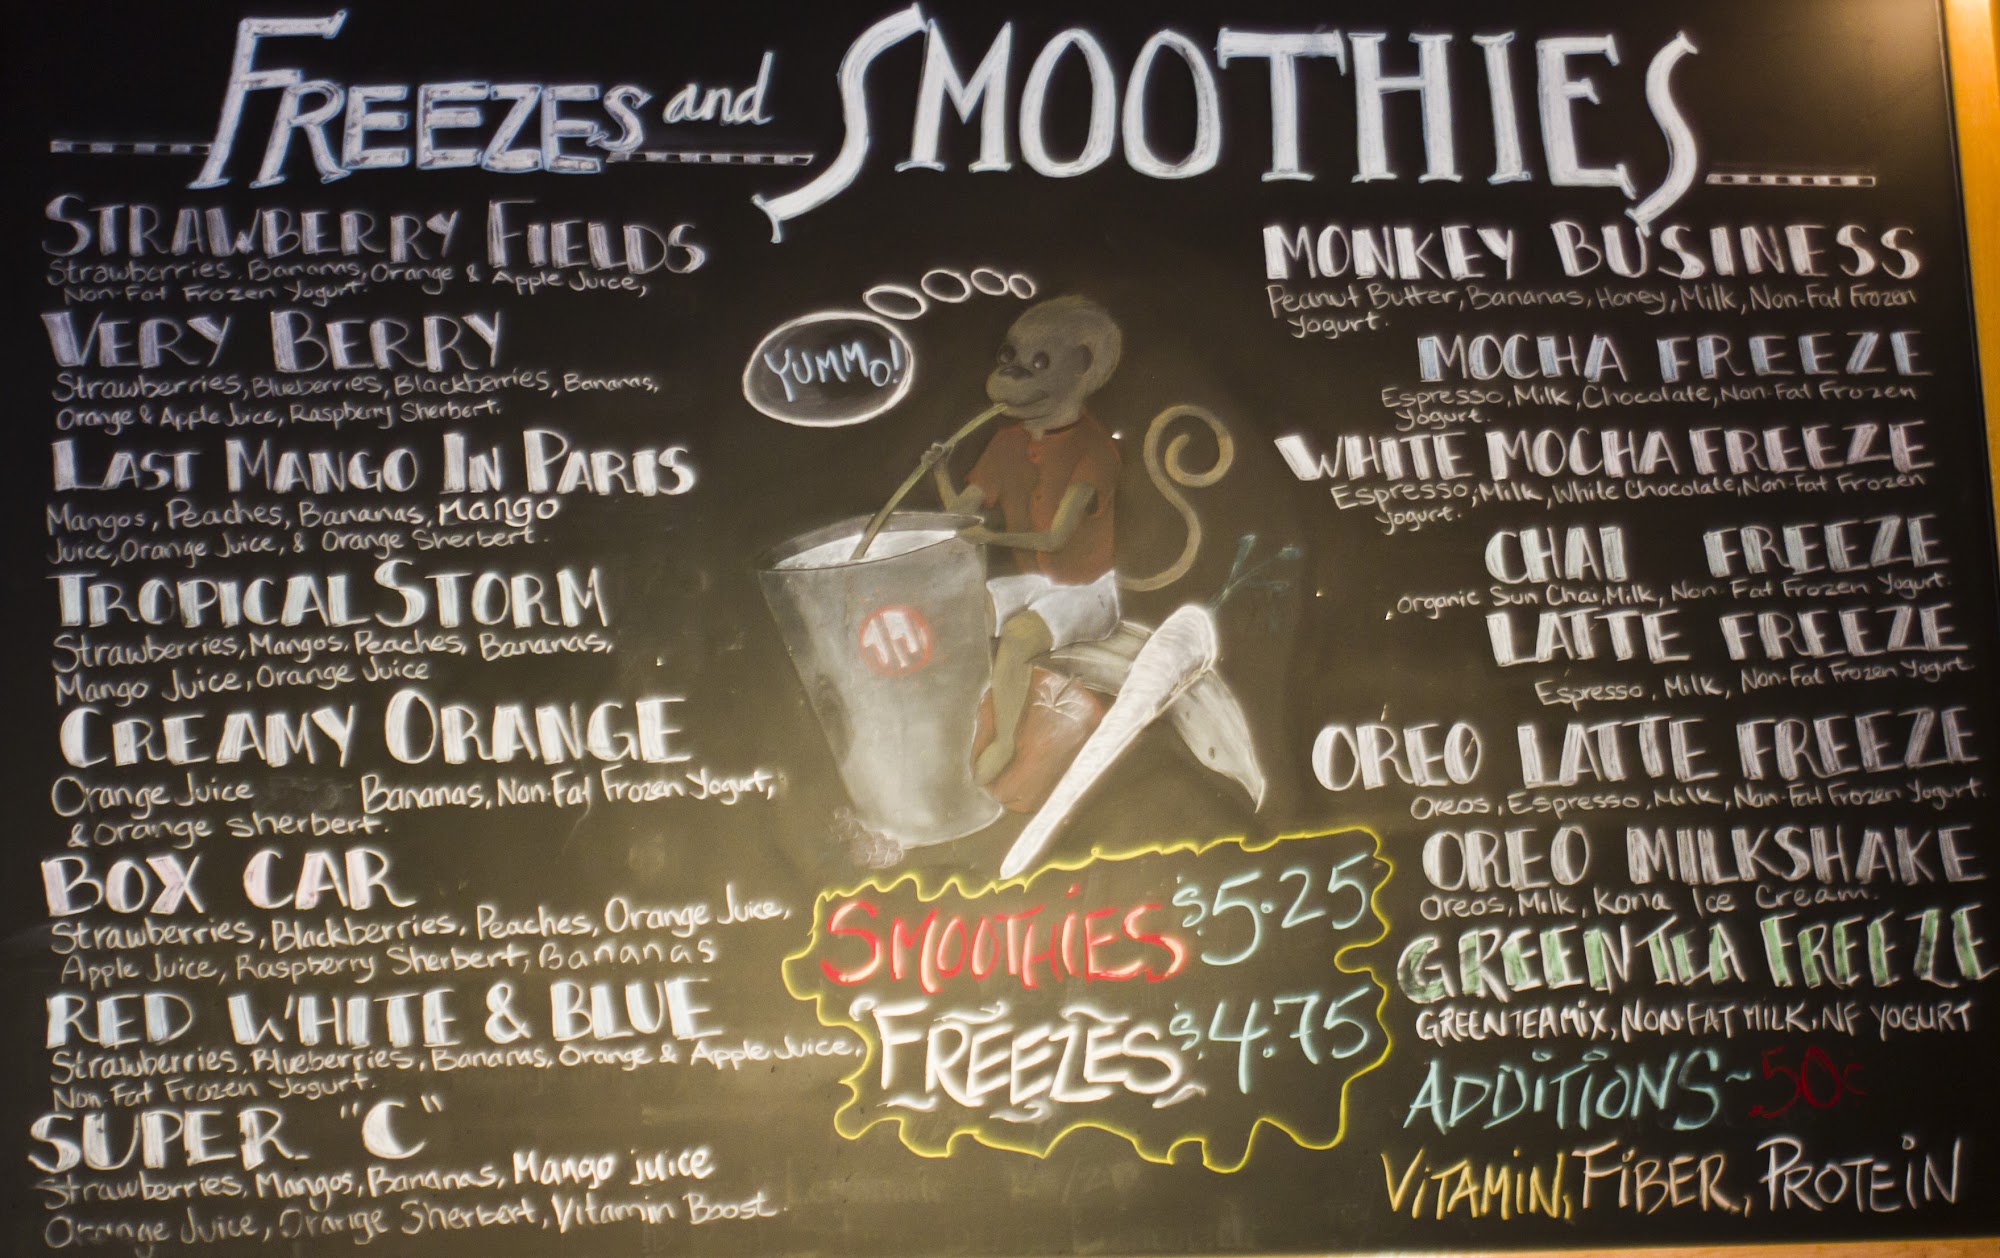 FREEZES and SMOOTHIES
STRAWBERRY FIELDS
Strawberries, Bananas, Orange & Apple Juice,
Non-Fat Frozen Yogurt.
VERY BERRY
Strawberries, Blueberries, Blackberries, Bananas,
Orange & Apple Juice, Raspberry Sherbert.
LAST MANGO IN PARIS
Mangos, Peaches, Bananas, Mango
Juice, Orange Juice, & Orange Sherbert.
TROPICAL STORM
Strawberries, Mangos, Peaches, Bananas,
Mango Juice, Orange Juice
CREAMY ORANGE
Orange Juice Bananas, Non-Fat Frozen Yogurt,
& Orange Sherbert.
BOX CAR
Strawberries, Blackberries, Peaches, Orange Juice,
Apple Juice, Raspberry Sherbert, Bananas
RED WHITE & BLUE
Strawberries, Blueberries, Bananas, Orange & Apple Juice,
Non-Fat Frozen Yogurt.
SUPER "C"
Strawberries, Mangos, Bananas, Mango juice
Orange Juice, Orange Sherbert, Vitamin Boost.
YUMMO!
SMOOTHIES $5.25
FREEZES $4.75
MONKEY BUSINESS
Peanut Butter, Bananas, Honey, Milk, Non-Fat Frozen
Yogurt.
MOCHA FREEZE
Espresso, Milk, Chocolate, Non-Fat Frozen
Yogurt.
WHITE MOCHA FREEZE
Espresso, Milk, White Chocolate, Non-Fat Frozen
Yogurt.
CHAI FREEZE
Organic Sun Chai, Milk, Non-Fat Frozen Yogurt.
LATTE FREEZE
Espresso, Milk, Non-Fat Frozen Yogurt.
OREO LATTE FREEZE
Oreos, Espresso, Milk, Non-Fat Frozen Yogurt.
OREO MILKSHAKE
Oreos, Milk, Kona Ice Cream.
GREEN TEA FREEZE
GREEN TEA MIX, NON FAT MILK, NF YOGURT
ADDITIONS ~ .50¢
VITAMIN, FIBER, PROTEIN